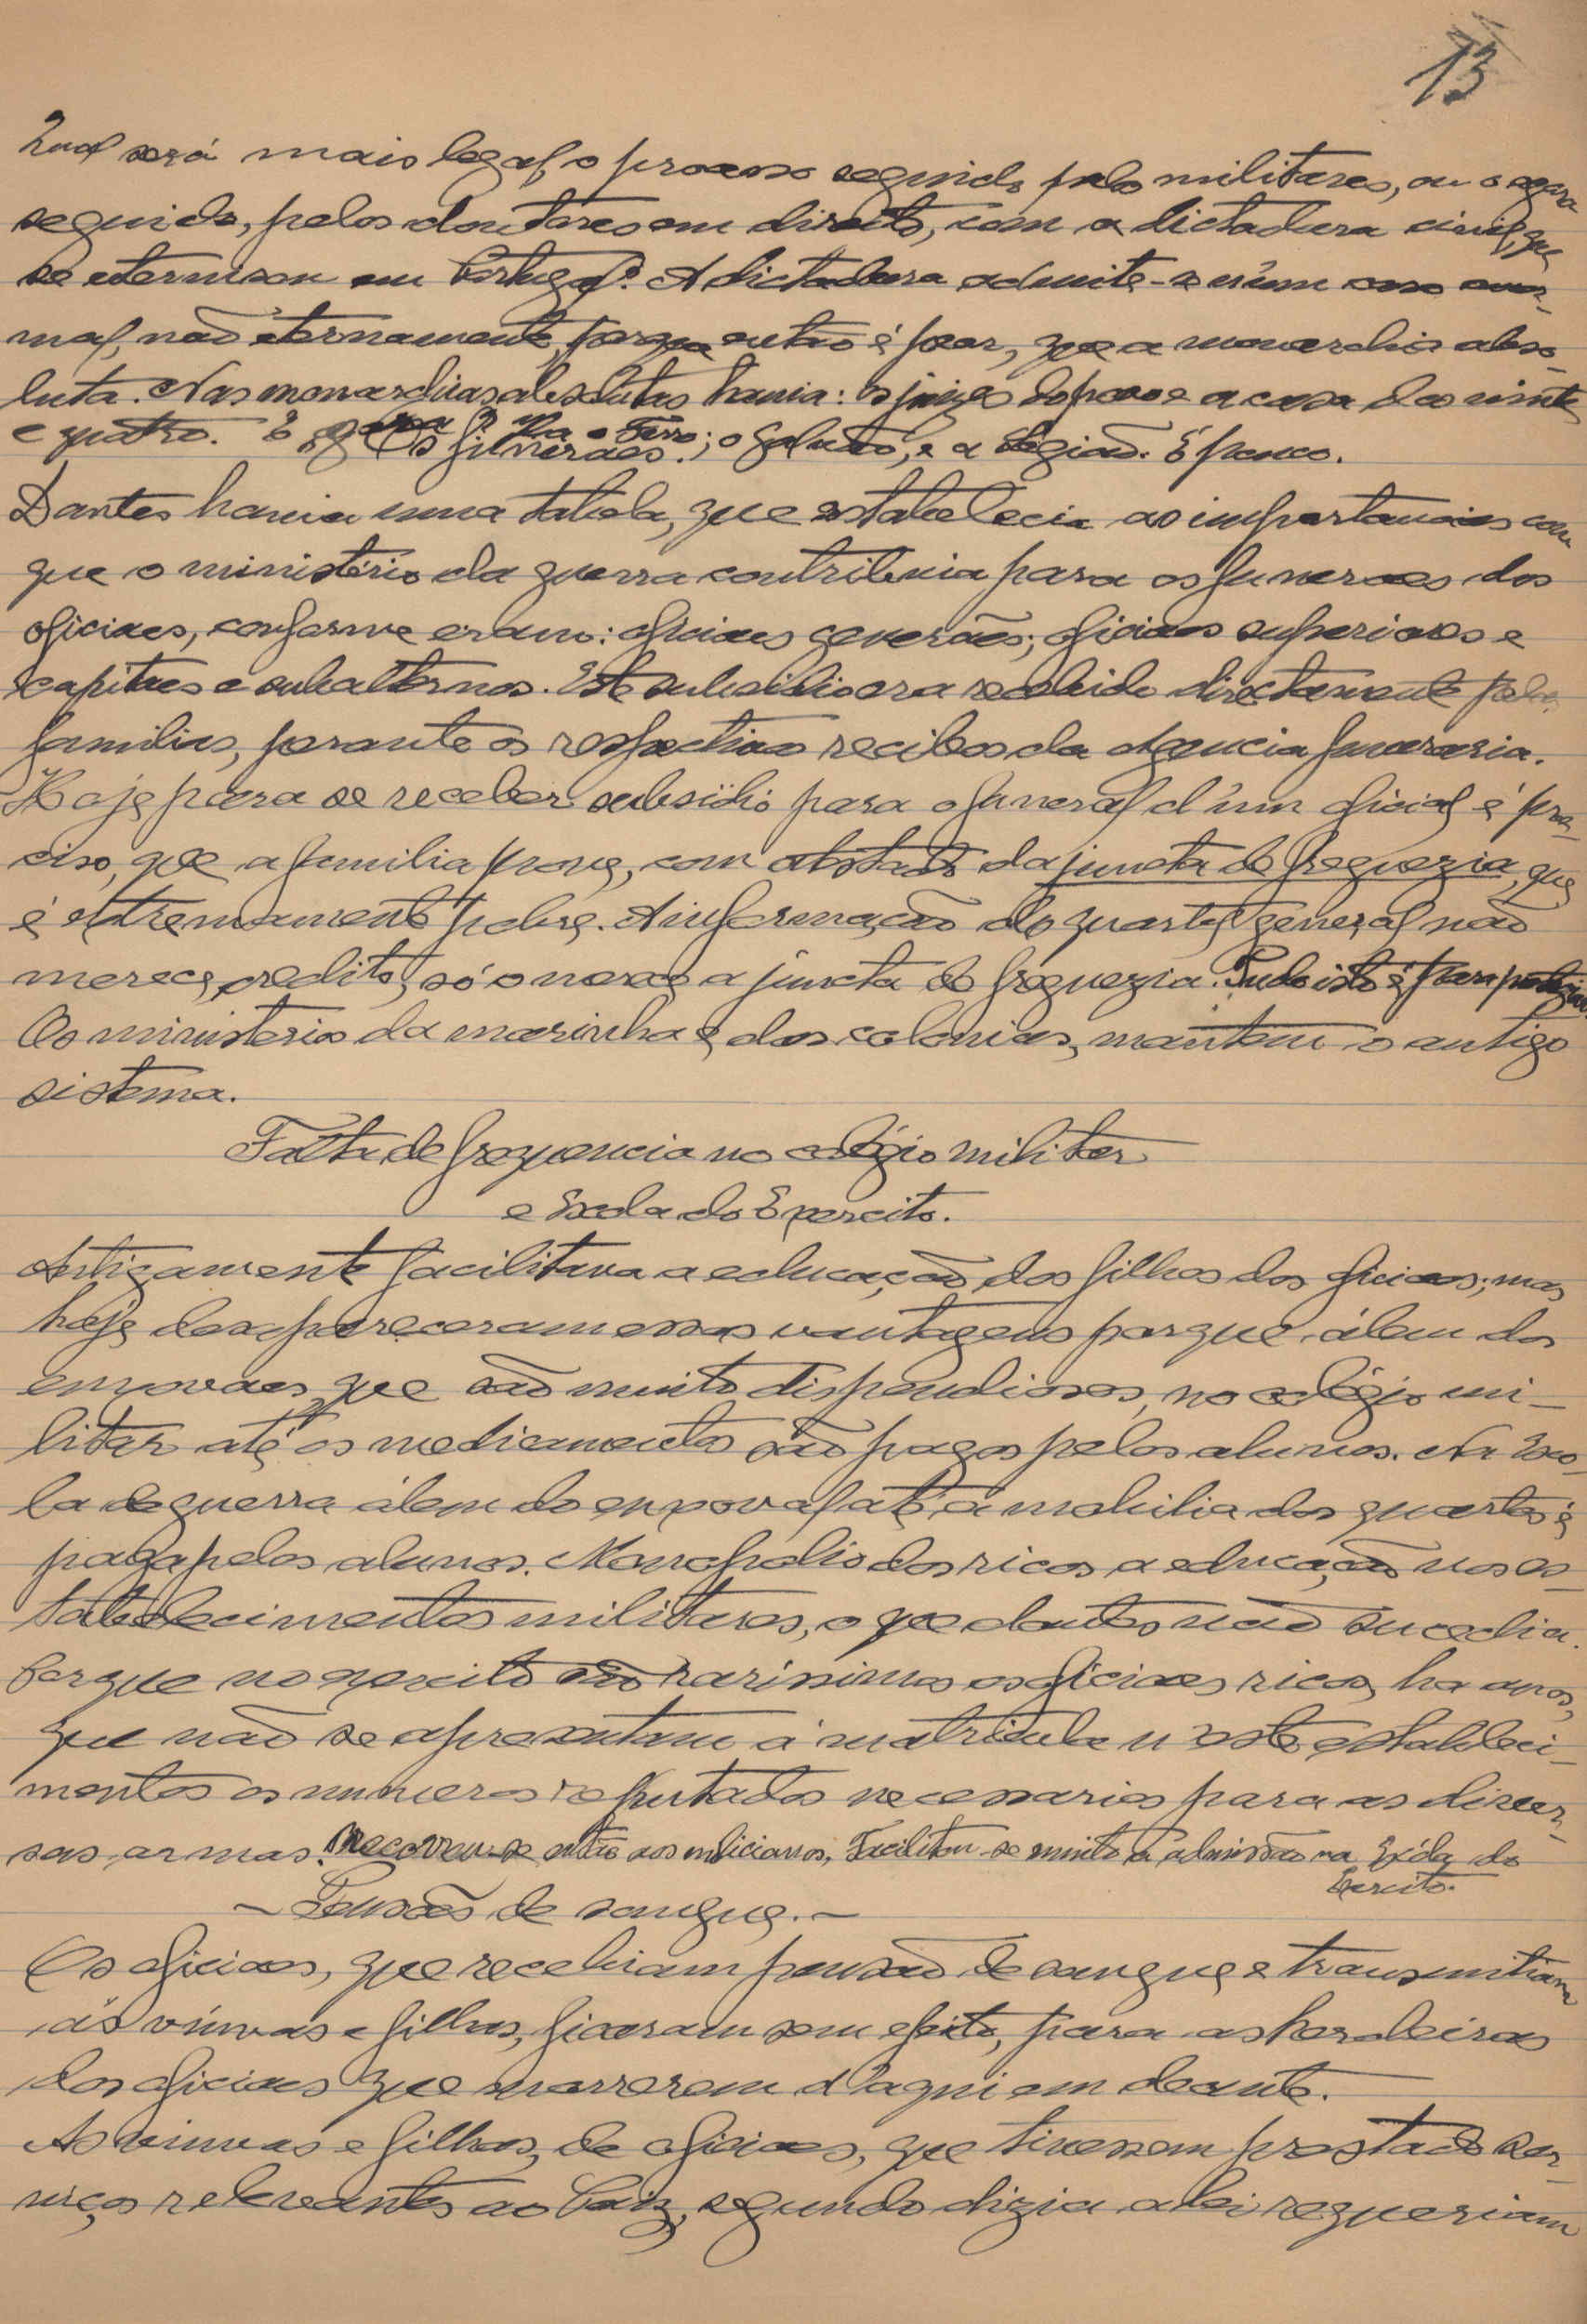 13
Qual será mais legal, o processo seguido pelos militares, ou o agora
seguido, pelos doutores em direito, com a dictadura civil, que
se eternisou em Portugal? A dictadura admite-se n'um caso anor-
mal, não eternamente, porque então é peor, que a monarchia abso-
luta. Nas monarchias absolutas havia: os juizes do povo e a casa dos vinte
e quatro. E agora? Ha o Tarro; o Galvão, e a Legião. É pouco.
Os funeráes.
Dantes havia uma tabela, que estabelecia as importancias com
que o ministério da guerra contribuia para os funeraes dos
oficiaes, conforme eram: oficiaes generáes; oficiaes superiores e
capitães e subalternos. Este subsidio era recebido directamente pelas
familias, perante os respectivos recibos da Agencia funeraria.
Hoje para se receber subsidio para o funeral d'um oficial é pre-
ciso, que a familia prove, com atestado da juncta de freguezia, que
é extremamente pobre. A informação do quartel general não
merece credito, só o merece a juncta de freguezia. Tudo isto é para
Os ministerios da marinha e das colonias, mantem o antigo
sistema.
Falta de frequencia no colégio militar
e Escola do Exercito.
Antigamente facilitava a educação dos filhos dos oficiaes; mas
hoje desapareceram essas vantagens porque, álem dos
enxovaes que são muito dispendiosos, no colégio mi-
litar até os medicamentos são pagos pelos alunos. Na Esco-
la de guerra álem do enxoval até a mobilia dos quartos é
paga pelos alunos. Monopolio dos ricos a educação nos es-
tabelecimentos militares, o que dantes não sucedia.
Porque no exercito são rarissimos os oficiaes ricos, ha anos,
que não se apresentam á matricula n'este estabeleci-
mentos os numeros reputados necessarios para as diver-
sas armas. Recorreu-se então aos milicianos, Facilitou-se muito a admissão na Escola do
Exercito.
- Pensões de sangue. -
Os oficiaes, que recebiam pensão de sangue e transmitiam
ás viuvas e filhas, ficaram sem efeito, para as herdeiras
dos oficiaes que morrerem d'aqui em deante.
As viuvas e filhas, de oficiaes, que tivessem prestado ser-
viços relevantes ao Paiz, segundo dizia a lei requeriam